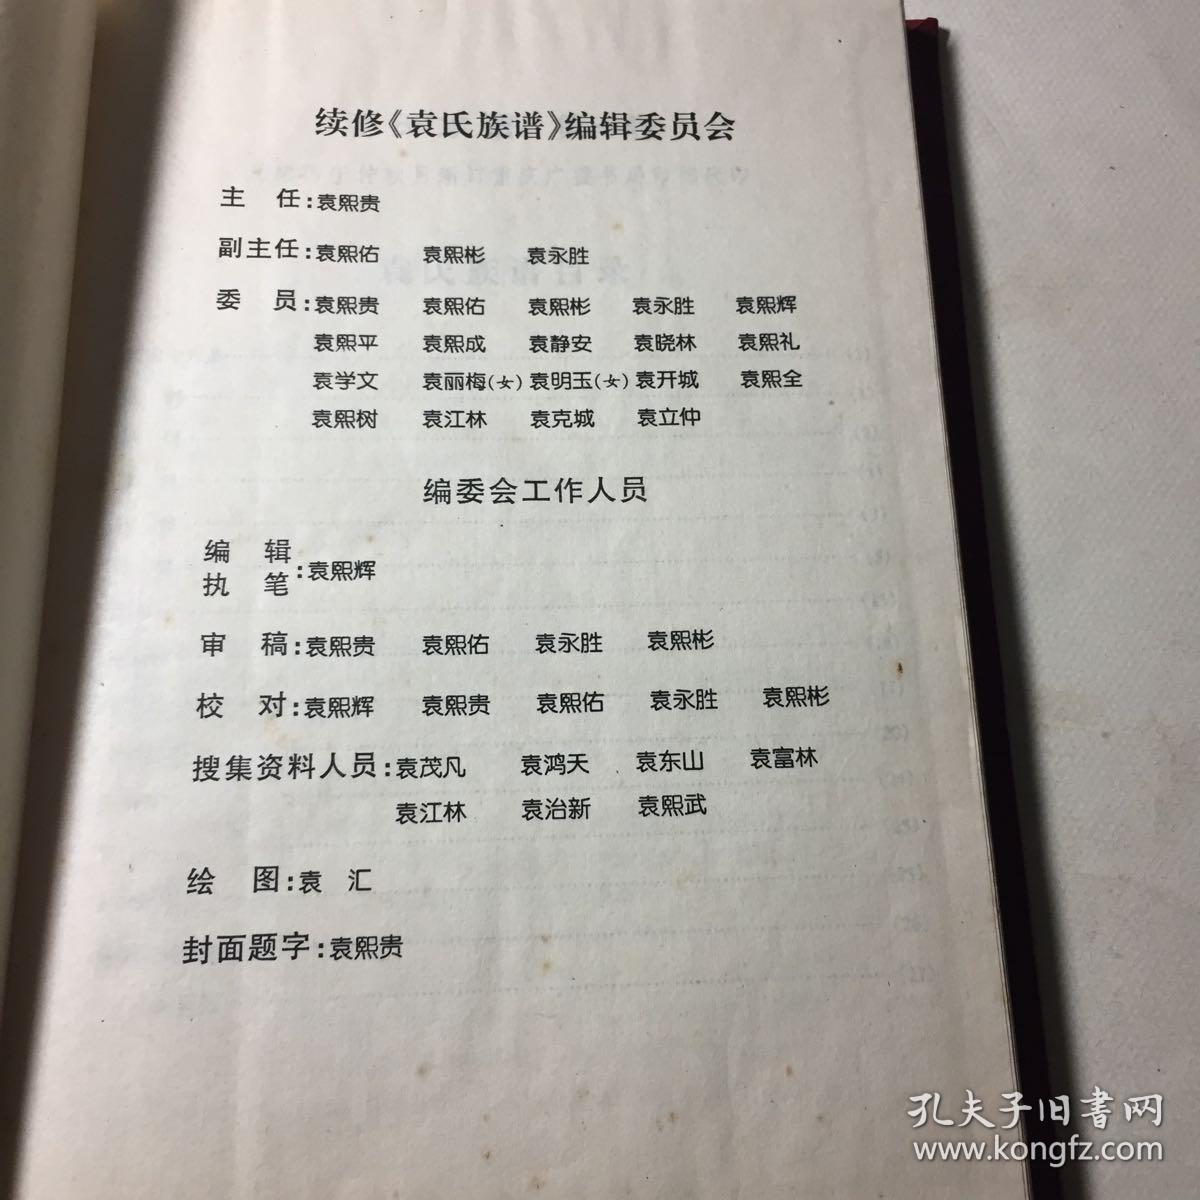 续修《袁氏族谱》编辑委员会
主 任:袁熙贵
副主任:袁熙佑 袁熙彬 袁永胜
委 员:袁熙贵 袁熙佑 袁熙彬 袁永胜 袁熙辉
袁熙平 袁熙成 袁静安 袁晓林 袁熙礼
袁学文 袁丽梅(女) 袁明玉(女) 袁开城 袁熙全
袁熙树 袁江林 袁克城 袁立仲
编委会工作人员
编 辑
执 笔:袁熙辉
审 稿:袁熙贵 袁熙佑 袁永胜 袁熙彬
校 对:袁熙辉 袁熙贵 袁熙佑 袁永胜 袁熙彬
搜集资料人员:袁茂凡 袁鸿天 袁东山 袁富林
袁江林 袁治新 袁熙武
绘 图:袁 汇
封面题字:袁熙贵
孔夫子旧书网
www.kongfz.com